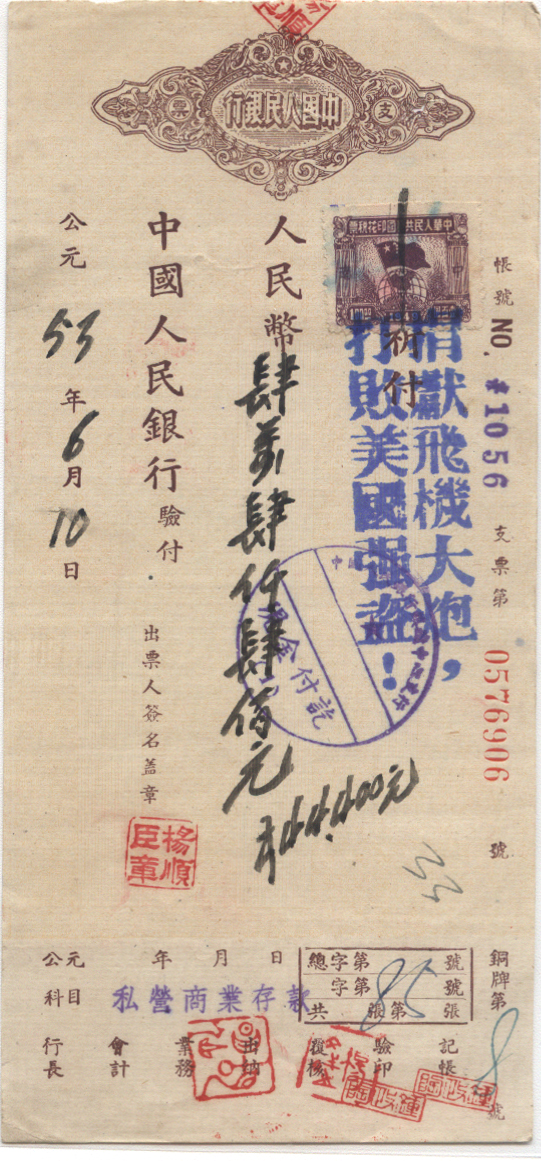 中國人民銀行
支票
帳號 NO. #1056 支票第 0576906 號
中華人民共和國印花稅票
捐獻飛機大炮，
打敗美國强盜！
祈付
人民幣肆萬肆仟肆佰元
44,400元
33
現金付訖
中國人民銀行驗付
出票人簽名蓋章
楊順臣章
公元53年6月10日
銅牌第8號
總字第 號
字第 號
共 張第 張
85
公元 年 月 日
科目 私營商業存款
記帳
驗印
覆核
出納
業務
會計
行長